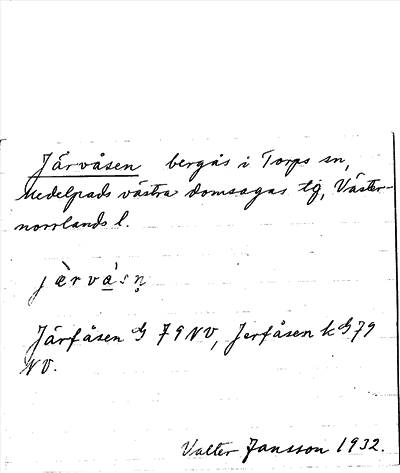 Järvåsen bergås i Torps sn,
Medelpads västra domsagas tg, Väster-
norrlands l.
jæ̀rvás̥n̥
Järfåsen G 79 NV, Jerfåsen k G 79
NV.
Valter Jansson 1932.